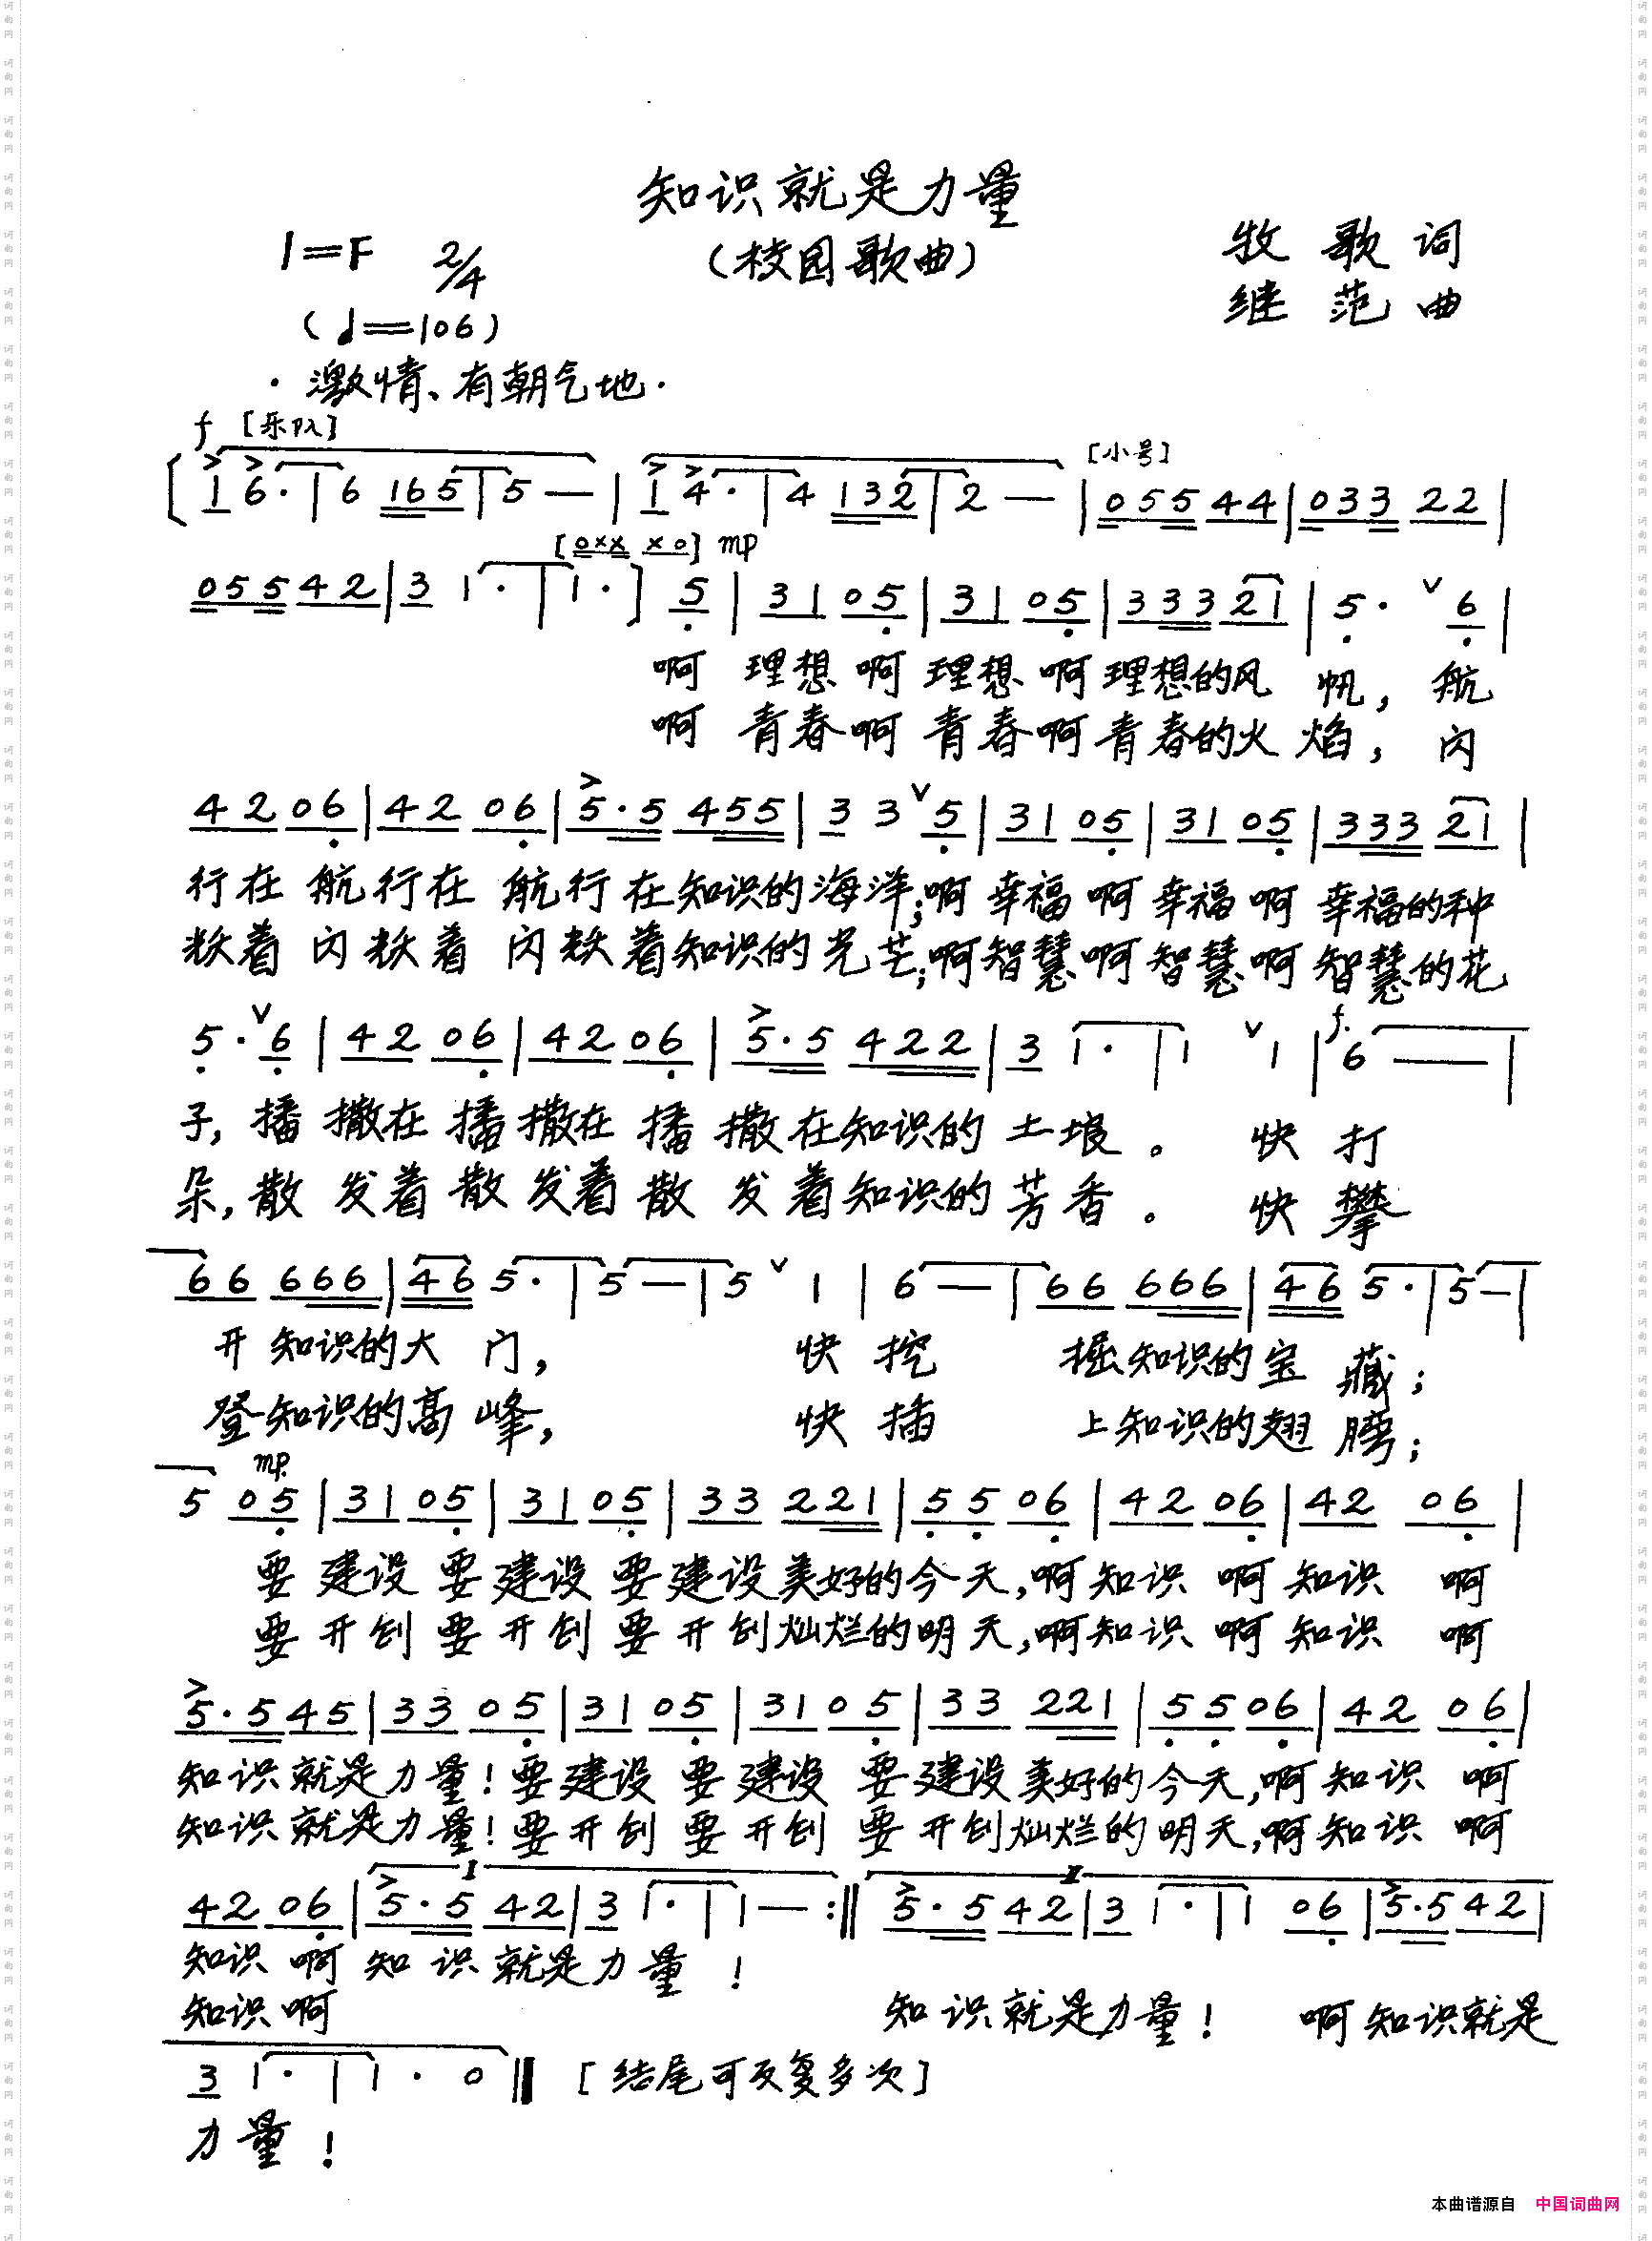 知识就是力量
(校园歌曲)
1=F 2/4
(♩=106)
牧歌词
继范曲
·激情、有朝气地·
f [乐队] [小号]
[1 6·|6 165|5 —|1 4·|4 132|2 —|055 44|033 22|
[0×× ×0] mp
055 42|3 1·|1·] 5|31 05|31 05|333 21|5· ∨ 6|
啊 理想 啊 理想 啊 理想的风 帆, 航
啊 青春 啊 青春 啊 青春的火 焰, 闪
42 06|42 06|5·5 455|3 3 ∨ 5|31 05|31 05|333 21|
行在 航行在 航行在知识的海洋;啊 幸福 啊 幸福 啊 幸福的种
耀着 闪耀着 闪耀着知识的光芒;啊智慧 啊智慧 啊智慧的花
f.
5· ∨ 6|42 06|42 06|5·5 422|3 1·|1 ∨ 1|6 —|
子, 播 撒在 播撒在 播 撒在知识的 土垠。 快 打
朵, 散 发着 散发着 散 发着知识的 芳香。 快 攀
66 666|46 5·|5 —|5 ∨ 1|6 —|66 666|46 5·|5 —|
开 知识的大 门, 快 挖 掘知识的宝 藏;
登知识的高 峰, 快 插 上知识的翅 膀;
mp.
5 05|31 05|31 05|33 221|55 06|42 06|42 06|
要 建设 要 建设 要 建设美好的今天,啊知识 啊知识 啊
要 开创 要 开创 要 开创灿烂的明天,啊知识 啊知识 啊
5·5 45|33 05|31 05|31 05|33 221|55 06|42 06|
知识就是力量!要建设 要建设 要建设美好的今天,啊知识 啊
知识就是力量!要开创 要开创 要开创灿烂的明天,啊知识 啊
I II
42 06|5·5 42|3 1·|1 — :‖5·5 42|3 1·|1 06|5·5 42|
知识 啊 知识就是力量!
知识啊 知识就是力量! 啊知识就是
3 1·|1· 0‖ [结尾可反复多次]
力量!
本曲谱源自 中国词曲网